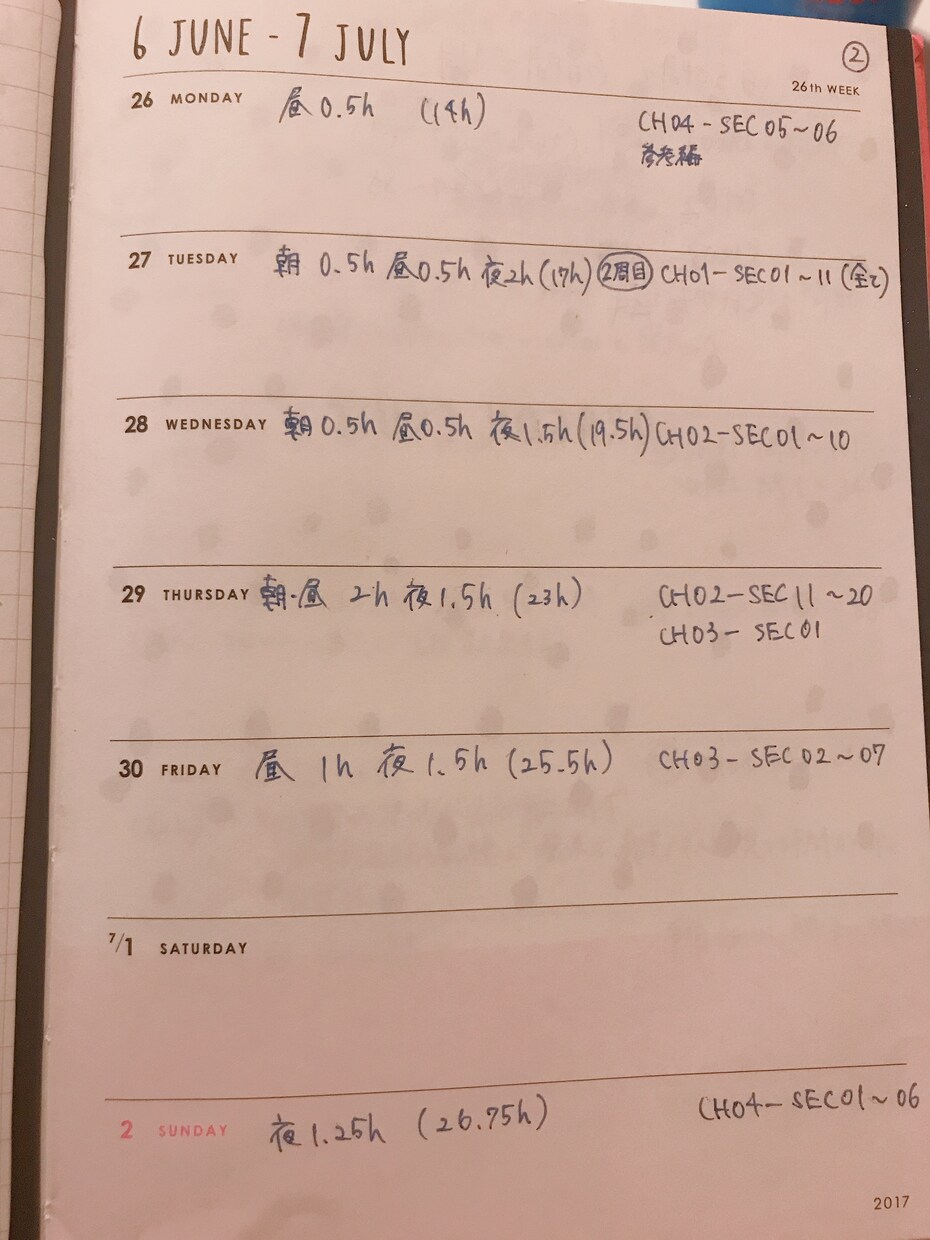 6 JUNE - 7 JULY
②
26th WEEK
26 MONDAY 昼0.5h (14h) CH04-SEC05~06
参考編
27 TUESDAY 朝 0.5h 昼0.5h 夜2h(17h) 2周目 CH01-SEC01~11(全て)
28 WEDNESDAY 朝0.5h 昼0.5h 夜1.5h(19.5h) CH02-SEC01~10
29 THURSDAY 朝・昼 2h 夜1.5h (23h) CH02-SEC11~20
CH03-SEC01
30 FRIDAY 昼 1h 夜1.5h (25.5h) CH03-SEC02~07
7/1 SATURDAY
2 SUNDAY 夜1.25h (26.75h) CH04-SEC01~06
2017